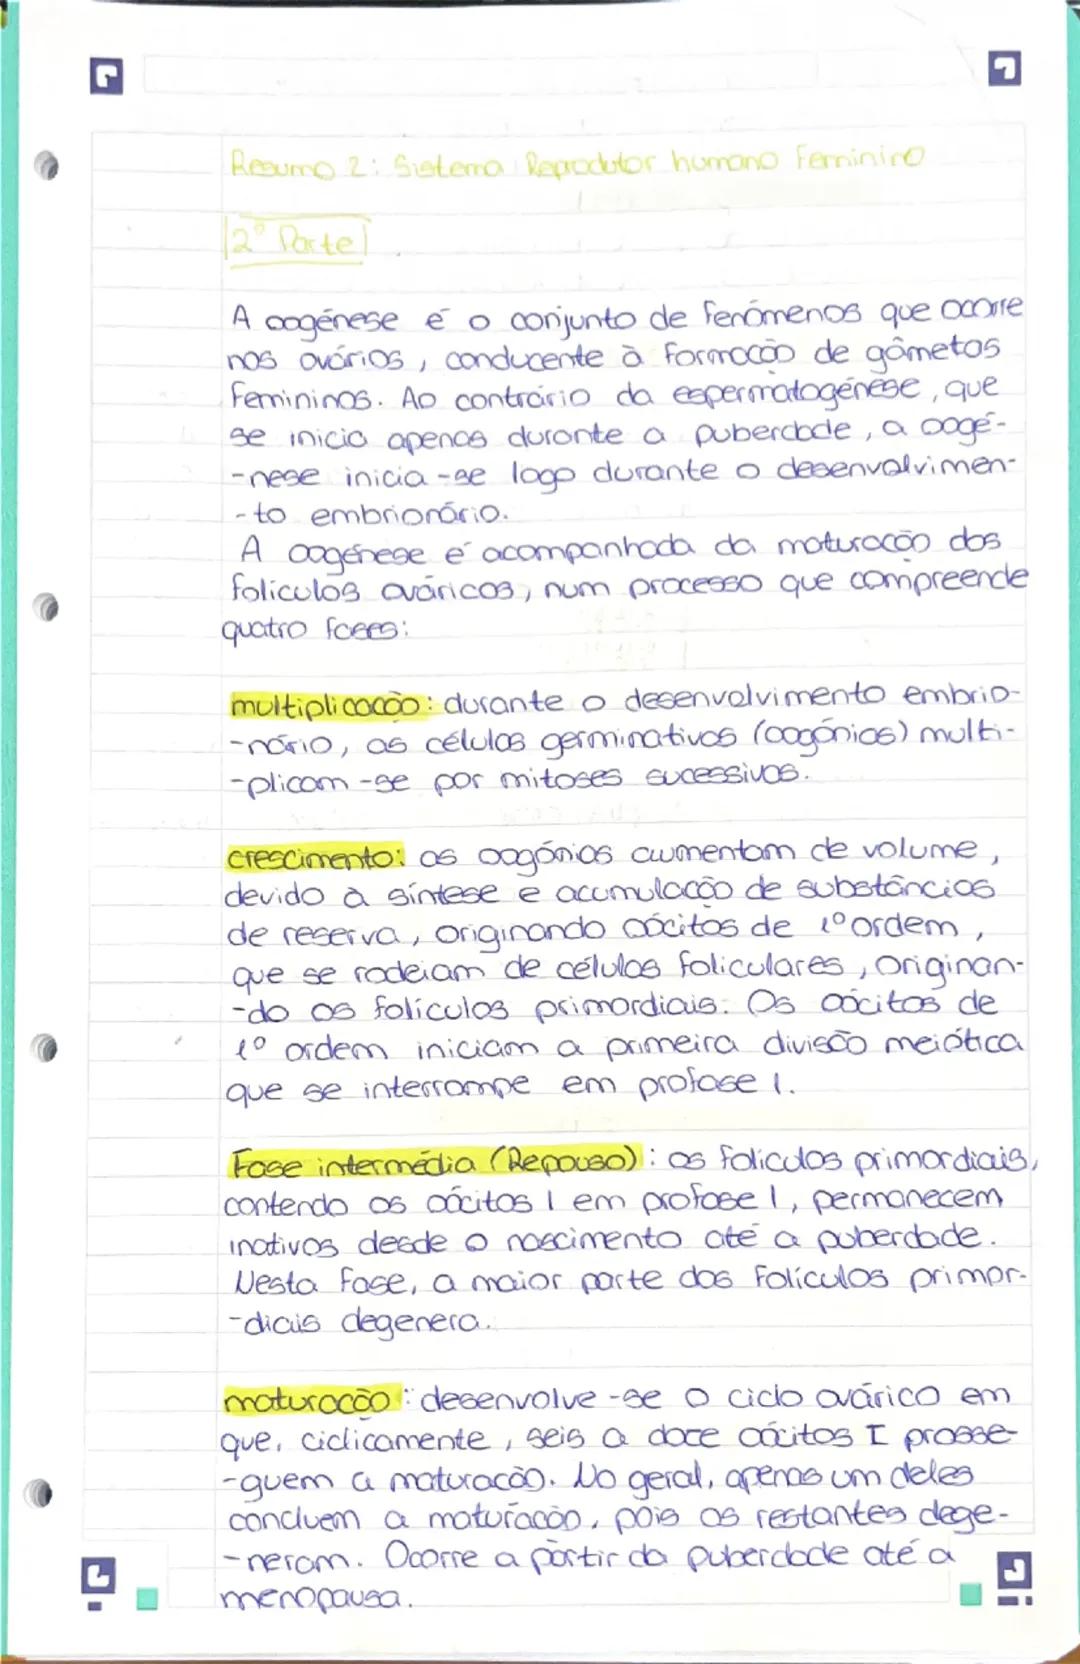 Resumo 2: Sistema Reprodutor humano Feminino
2º Parte
A oogénese é o conjunto de fenómenos que ocorre
nos ovários, conducente à formação de gâmetas
femininos. Ao contrário da espermatogénese, que
se inicia apenas durante a puberdade, a oogé-
-nese inicia-se logo durante o desenvolvimen-
-to embrionário.
A oogénese é acompanhada da maturação dos
folículos ováricos, num processo que compreende
quatro fases:
multiplicação: durante o desenvolvimento embrio-
-nário, as células germinativas (oogónias) multi-
-plicam-se por mitoses sucessivas.
crescimento: as oogónias aumentam de volume,
devido à síntese e acumulação de substâncias
de reserva, originando oócitos de 1º ordem,
que se rodeiam de células foliculares, originan-
-do os folículos primordiais. Os oócitos de
1º ordem iniciam a primeira divisão meiótica
que se interrompe em profase I.
Fase intermédia (Repouso): os folículos primordiais,
contendo os oócitos I em profase I, permanecem
inativos desde o nascimento até a puberdade.
Nesta fase, a maior parte dos folículos primor-
-diais degenera.
maturação: desenvolve-se o ciclo ovárico em
que, ciclicamente, seis a doze oócitos I prosse-
-guem a maturação. No geral, apenas um deles
concluem a maturação, pois os restantes dege-
-neram. Ocorre a partir da puberdade até a
menopausa.